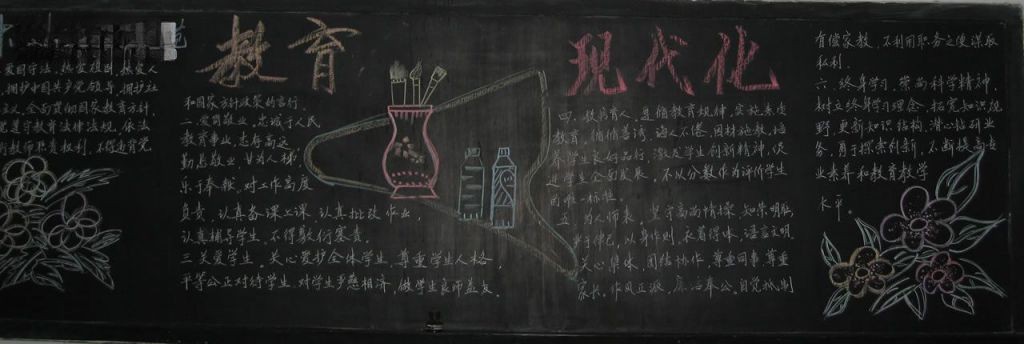 教育
现代化
爱国守法，热爱祖国，热爱人
，拥护中国共产党领导，拥护社
义，全面贯彻国家教育方针，
觉遵守教育法律法规，依法
行教师职责权利，不得违背党
和国家方针政策的言行。
二、爱岗敬业，忠诚于人民
教育事业，志存高远
勤恳敬业，甘为人梯，
乐于奉献，对工作高度
负责，认真备课上课，认真批改作业，
认真辅导学生，不得敷衍塞责。
三、关爱学生，关心爱护全体学生，尊重学生人格，
平等公正对待学生，对学生严慈相济，做学生良师益友。
四、教书育人，遵循教育规律，实施素质
教育，循循善诱，诲人不倦，因材施教，培
养学生良好品行，激发学生创新精神，促
进学生全面发展，不以分数作为评价学生
的唯一标准。
五、为人师表，坚守高尚情操，知荣明耻，
严于律己，以身作则，衣着得体，语言文明，
关心集体，团结协作，尊重同事，尊重
家长，作风正派，廉洁奉公，自觉抵制
有偿家教，不利用职务之便谋取
私利。
六、终身学习，崇尚科学精神，
树立终身学习理念，拓宽知识视
野，更新知识结构，潜心钻研业
务，勇于探索创新，不断提高专
业素养和教育教学
水平。